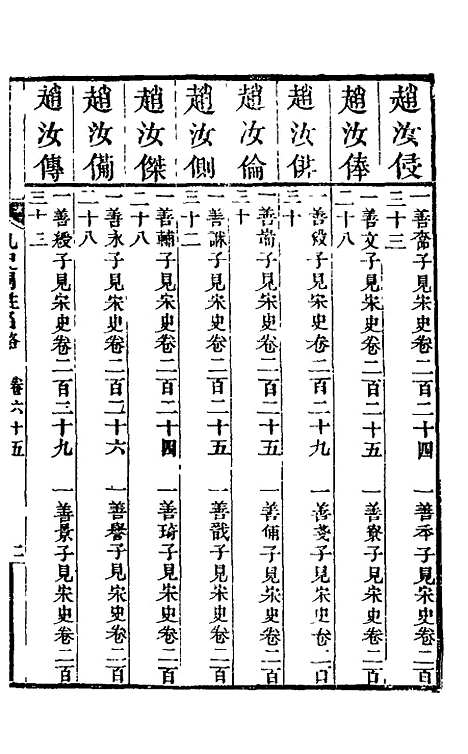 趙汝侵
一善　子見宋史卷二百二十四　一善　子見宋史卷二百
三十三
趙汝俸
一善文子見宋史卷二百二十五　一善寮子見宋史卷二百
二十八
趙汝
一善　子見宋史卷二百二十九　一善　子見宋史卷二
三十
趙汝倫
一善　子見宋史卷二百二十五　一善俑子見宋史卷二百
三十
趙汝側
一善　子見宋史卷二百二十五　一善戩子見宋史卷二百
三十二
趙汝傑
一善輔子見宋史卷二百二十四　一善琦子見宋史卷二百
二十八
趙汝備
一善永子見宋史卷二百二十六　一善譽子見宋史卷二百
二十八
趙汝傳
一善綬子見宋史卷二百二十九　一善景子見宋史卷二百
三十三
九史同姓名略　卷六十五　二